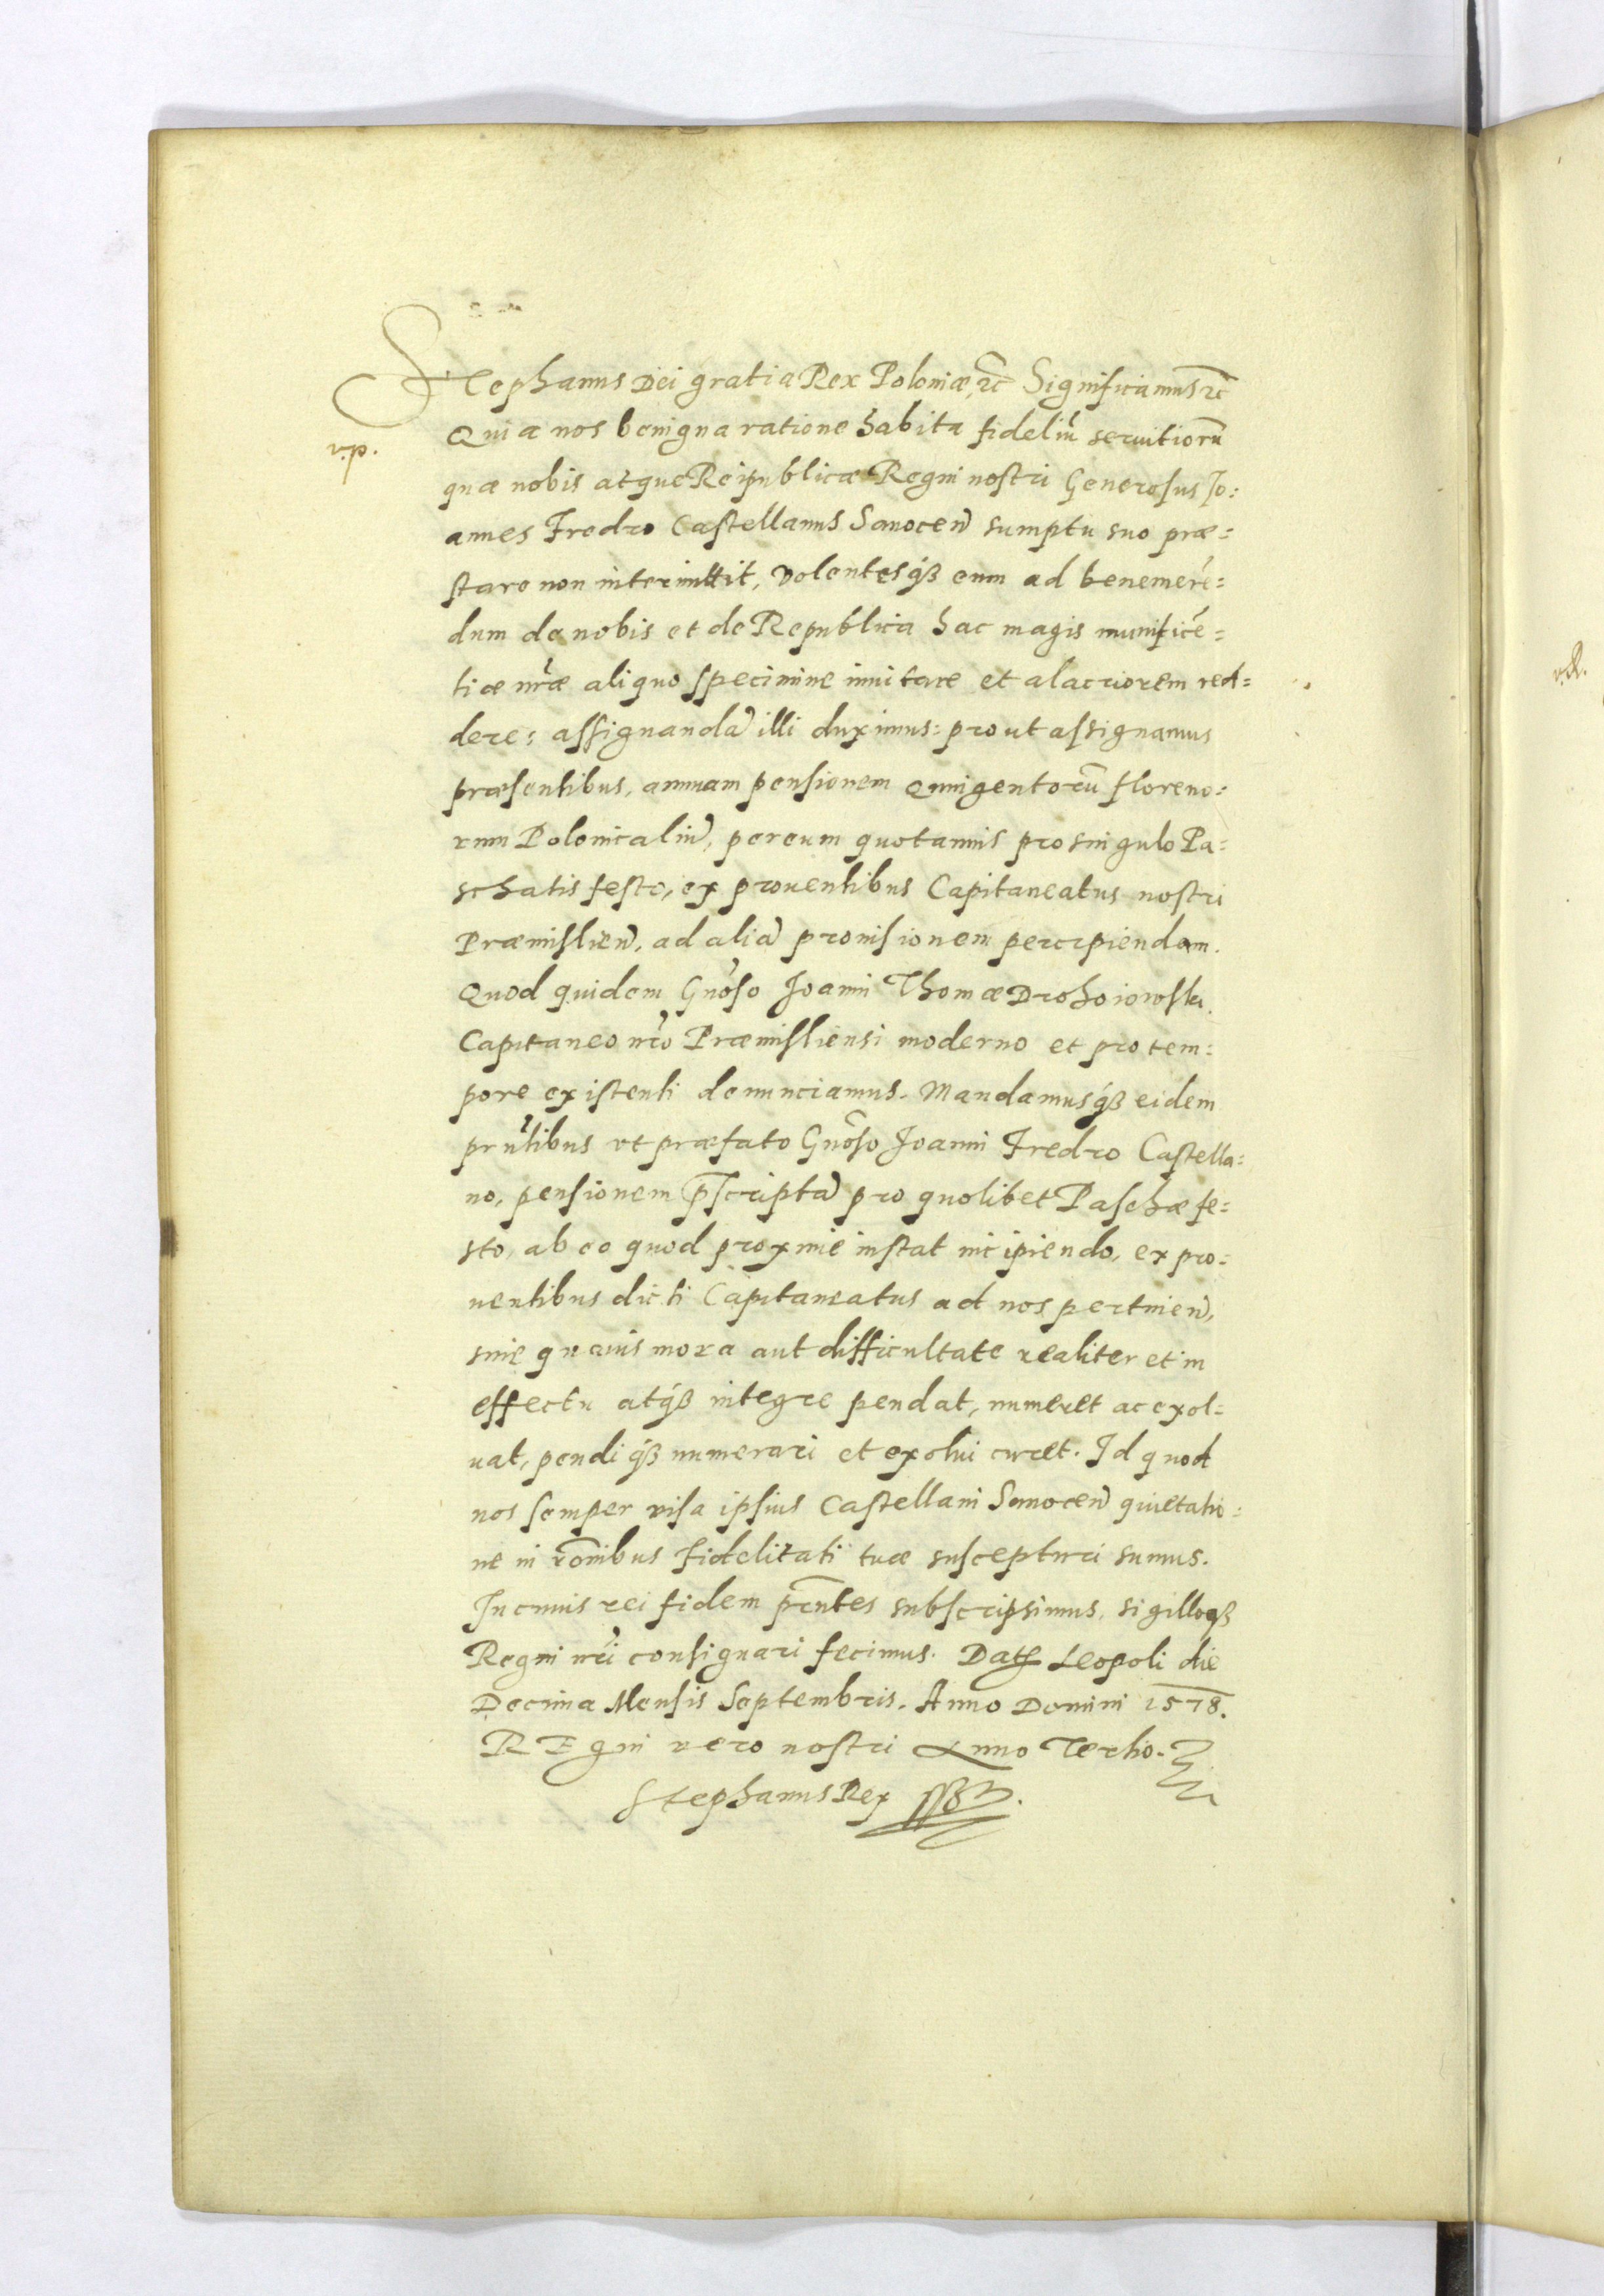 Stephanus Dei gratia Rex Poloniæ, &c̄ Significamus &c̄
v.p.
Quia nos benigna ratione habita fideliū servitiorū
quæ nobis atque Reipublicæ Regni nostri Generosus Jo:
annes Fredro Castellanus Sanoceñ sumptu suo præ:
stare non intermittit, volentesqȝ eum ad benemerē:
dum de nobis et de Republica hac magis munificē:
tiæ nr̃æ aliquo specimine inuitare et alacriorem red:
dere; assignandā illi duximus: prout assignamus
præsentibus, annuam pensionem Quingentorū floreno:
rum Polonicaliū, per eum quotannis pro singulo Pa:
schatis festo, ex prouentibus Capitaneatus nostri
Præmislieñ, ad aliā prouisionem percipiendam.
Quod quidem Gñoso Joanni Thomæ Drohoiowski
Capitaneo nr̃o Præmisliensi moderno et pro tem:
pore existenti denunciamus. Mandamusqȝ eidem
pr̃ntibus vt præfato Gñoso Joanni Fredro Castella:
no, pensionem p̄scriptā pro quolibet Paschæ fe:
sto, ab eo quod proxime instat incipiendo, ex pro:
uentibus dicti Capitaneatus ad nos pertineñ,
sine quauis mora aut difficultate realiter et in
effectu atqȝ integre pendat, numeret ac exol:
uat, pendiqȝ numerari et exolui curet. Id quod
nos semper visa ipsius Castellani Sanoceñ quietatio:
ne in rōnibus Fidelitati tuæ suscepturi sumus.
In cuius rei fidem pr̃ntes subscripsimus, sigilloqȝ
Regni nr̃i consignari fecimus. Datꝭ Leopoli die
Decima Mensis Septembris. Anno Domini 1578.
REgni vero nostri Anno Tertio.
Stephanus Rex sst.